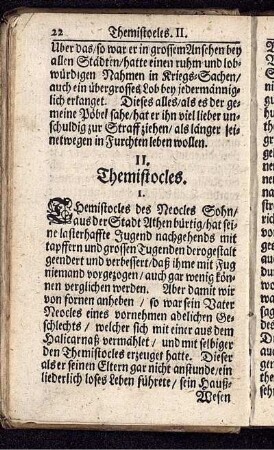 22 Themistocles. II.
Uber das/ so war er in grossem Ansehen bey
allen Städten/ hatte einen ruhm und lob-
würdigen Nahmen in Kriegs-Sachen/
auch ein übergrosses Lob bey jedermännig-
lich erlanget. Dieses alles/ als es der ge-
meine Pöbel sahe/ hat er ihn viel lieber un-
schuldig zur Straff ziehen/ als länger sei-
netwegen in Furchten leben wollen.
II.
Themistocles.
I.
THemistocles des Neocles Sohn/
aus der Stadt Athen bürtig/ hat sei-
ne lasterhaffte Jugend nachgehends mit
tapffern und grossen Tugenden derogestalt
geendert und verbessert/ daß ihme mit Fug
niemand vorgezogen/ auch gar wenig kön-
nen verglichen werden. Aber damit wir
von fornen anheben/ so war sein Vater
Neocles eines vornehmen adelichen Ge-
schlechts/ welcher sich mit einer aus dem
Halicarnaß vermählet/ und mit selbiger
den Themistocles erzeuget hatte. Dieser
als er seinen Eltern gar nicht anstunde/ ein
liederlich loses Leben führete/ sein Hauß-
Wesen